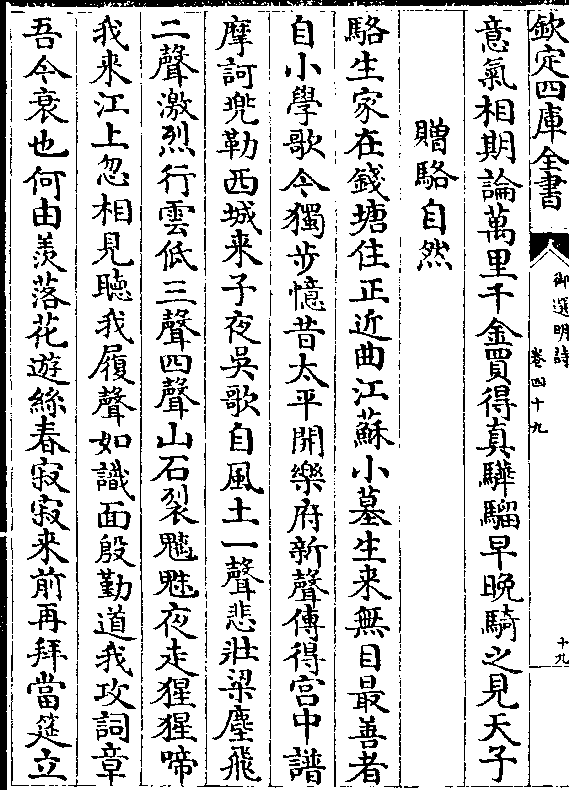 欽定四庫全書
御選明詩
卷四十九
十九
意氣相期論萬里千金買得真驊騮早晚騎之見天子
贈駱自然
駱生家在錢塘住正近曲江蘇小墓生来無目最善者
自小學歌今獨步憶昔太平開樂府新聲傳得宫中譜
摩訶兠勒西城来子夜吳歌自風土一聲悲壯梁塵飛
二聲激烈行雲低三聲四聲山石裂魑魅夜走猩猩啼
我来江上忽相見聽我履聲如識面殷勤道我攻詞章
吾今衰也何由羨落花遊絲春寂寂来前再拜當筵立